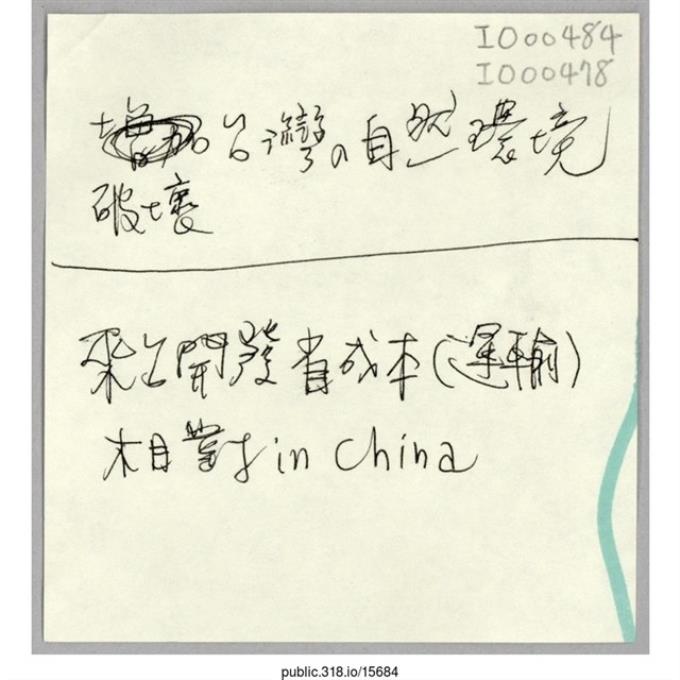 IO00484
IO00478
台灣の自然環境
破壞
開發省成本(運輸)
相對 in China
public.318.io/15684